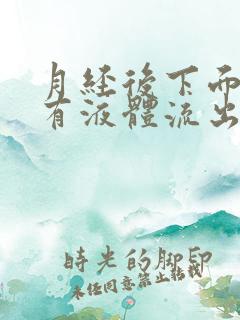 月經後下面
有液體流出
時光的腳印
未經同意禁止轉載